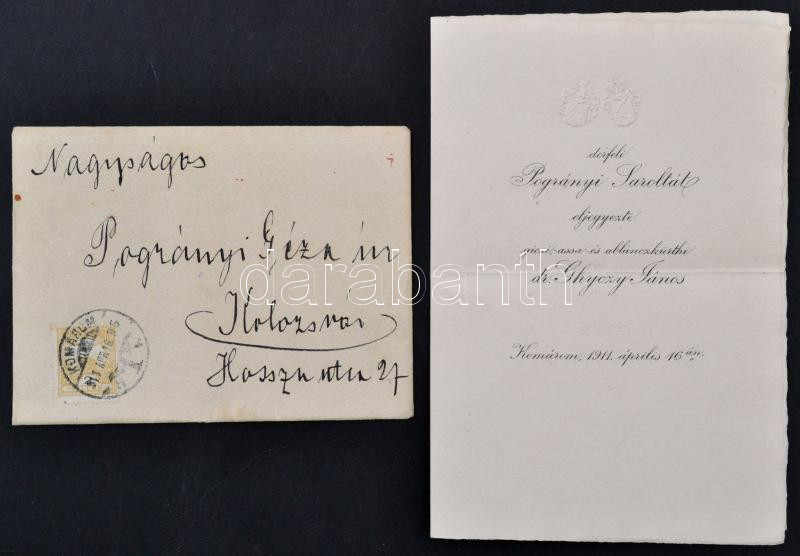 Nagyságos
Pogrányi Géza úr
Kolozsvár
Hosszu utca 27
KOMÁROM
dézfeli
Pogrányi Saroltát
eljegyezte
assa- és ablanczkürthi
dr. Ghyczy János
Komárom, 1911. április 16 án.
darabanth